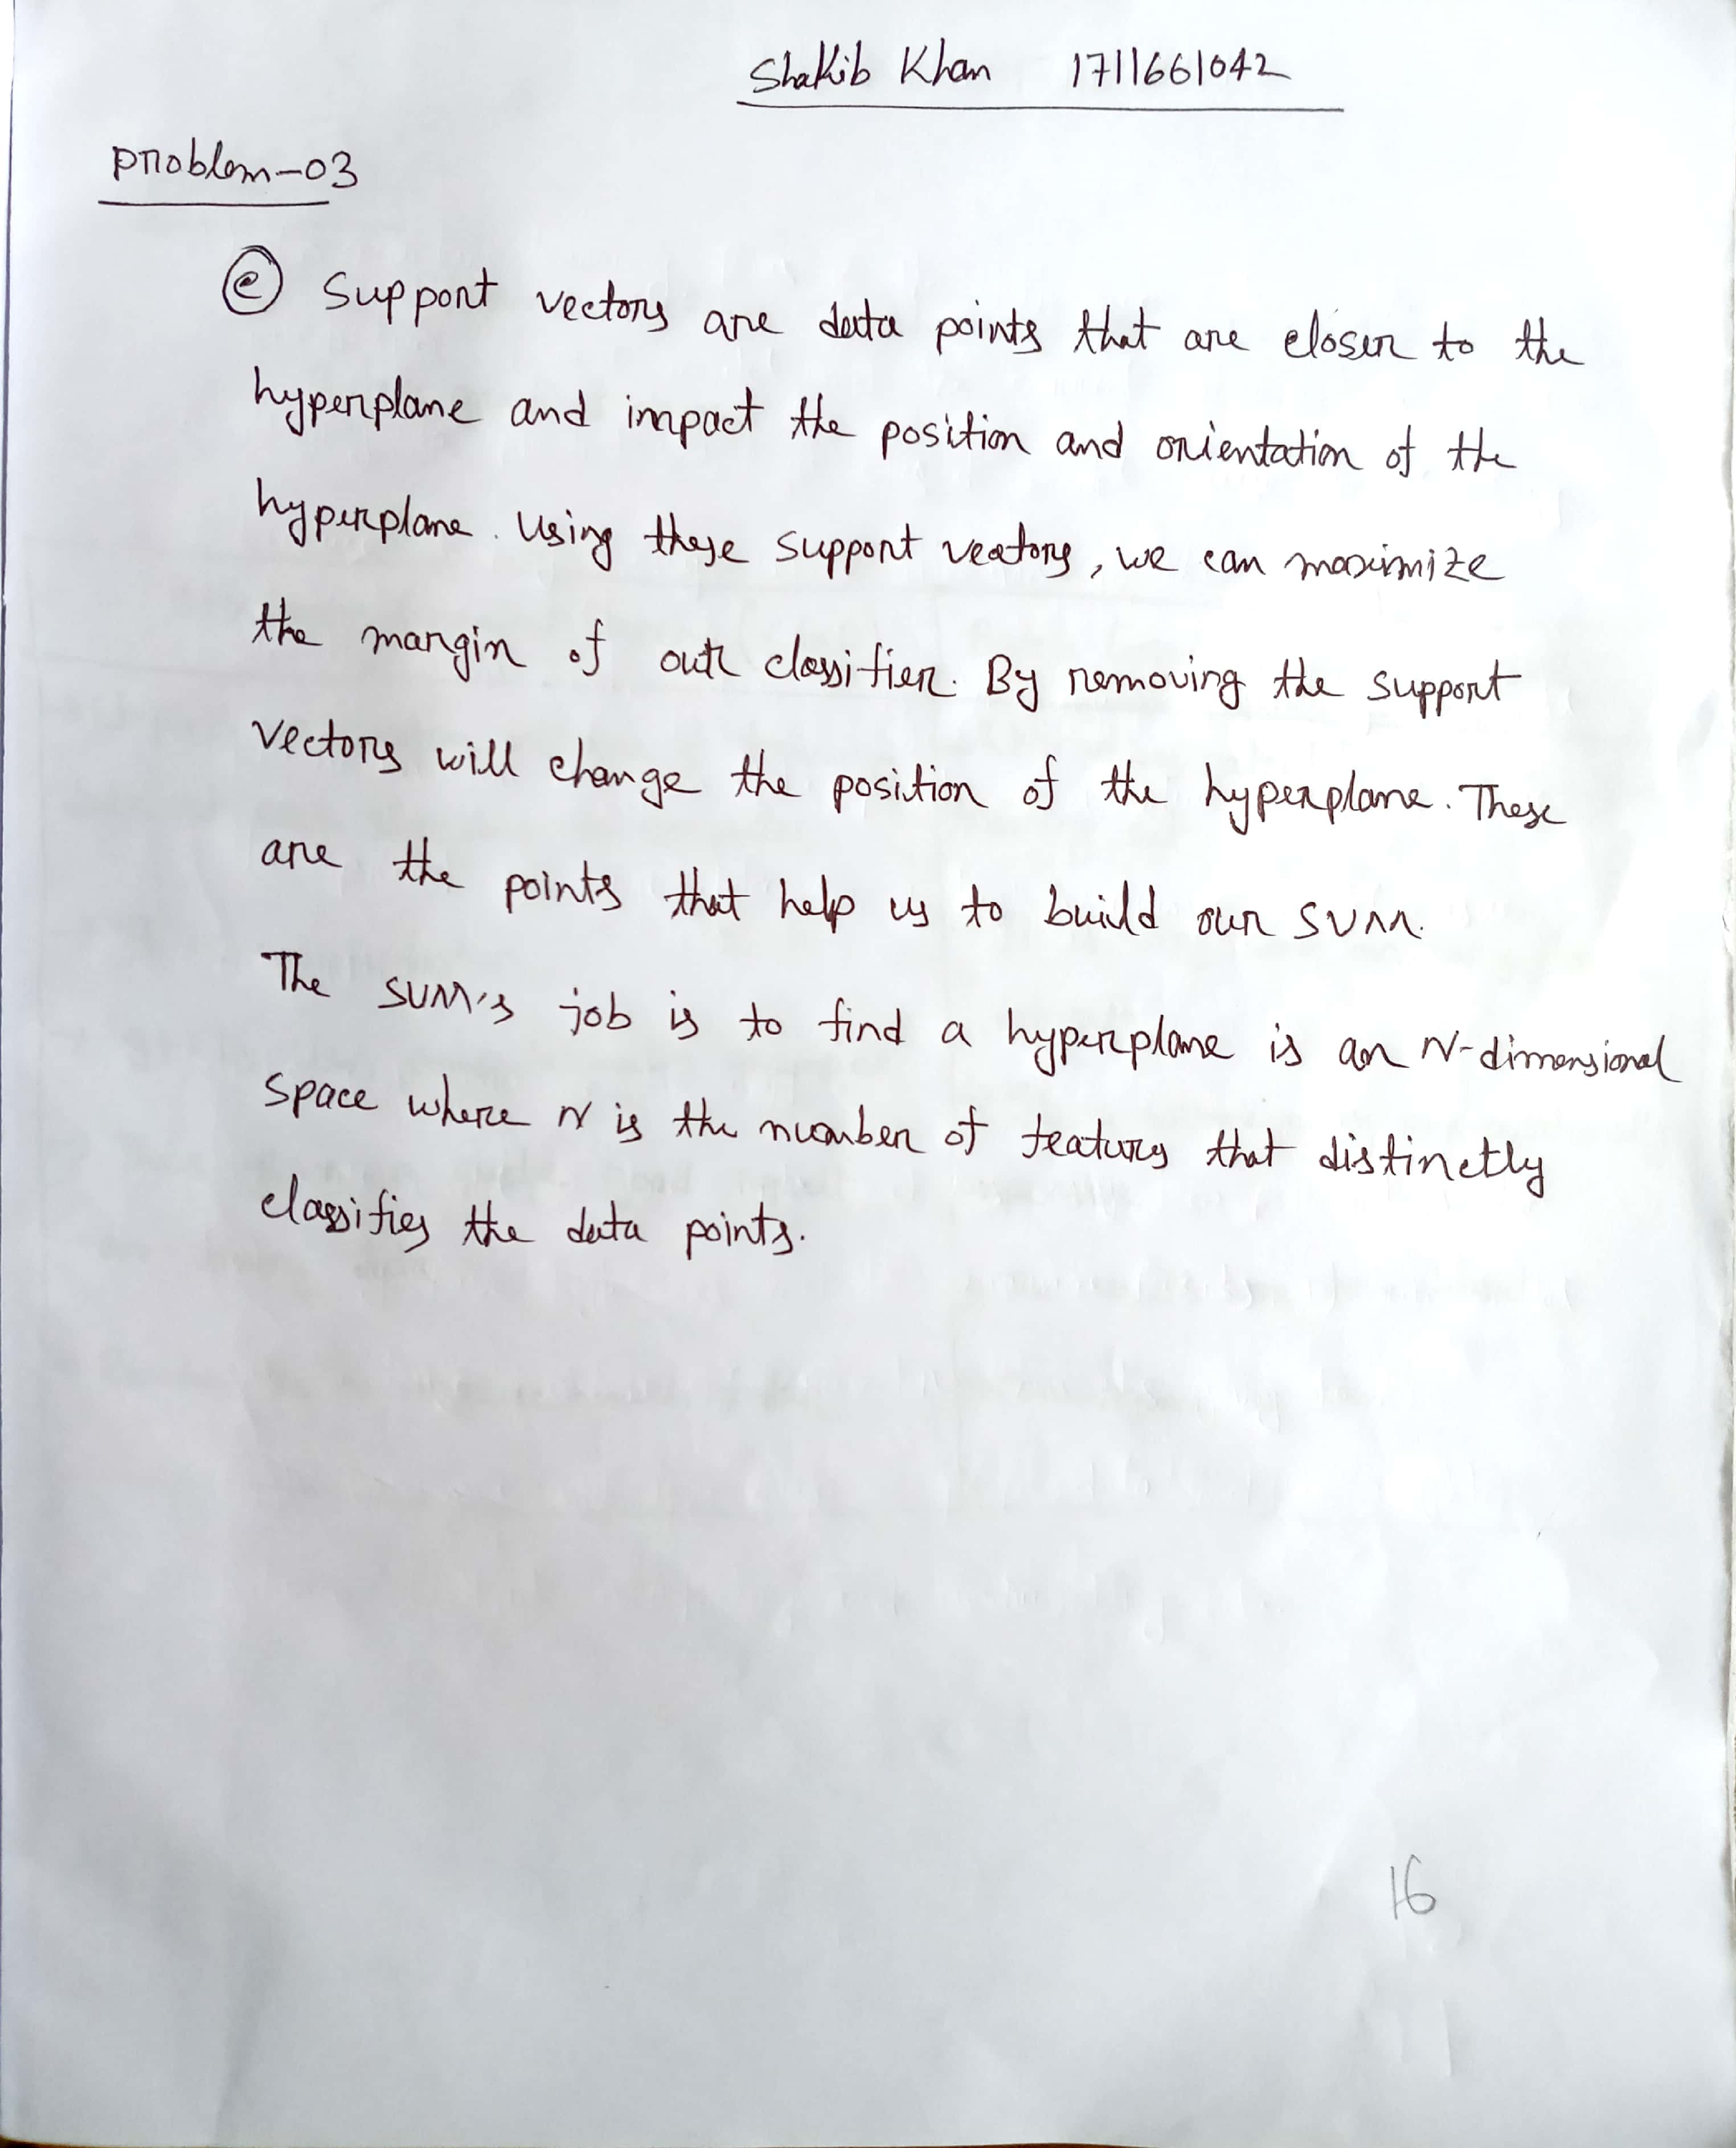 Shakib Khan 1711661042
Problem-03
(e) Support vectors are data points that are closer to the
hyperplane and impact the position and orientation of the
hyperplane. Using these support vectors, we can maximize
the margin of our classifier. By removing the support
vectors will change the position of the hyperplane. These
are the points that help us to build our SVM.
The SVM's job is to find a hyperplane is an N-dimensional
space where N is the number of features that distinctly
classifies the data points.
16